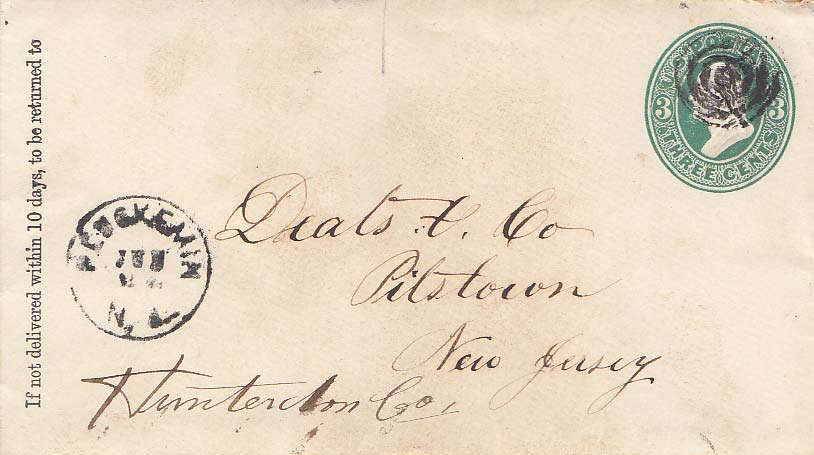 If not delivered within 10 days, to be returned to
U.S. POSTAGE
3 3
THREE CENTS
PLUCKEMIN
N.J.
Deats & Co
Pitstown
New Jersey
Hunterdon Co,